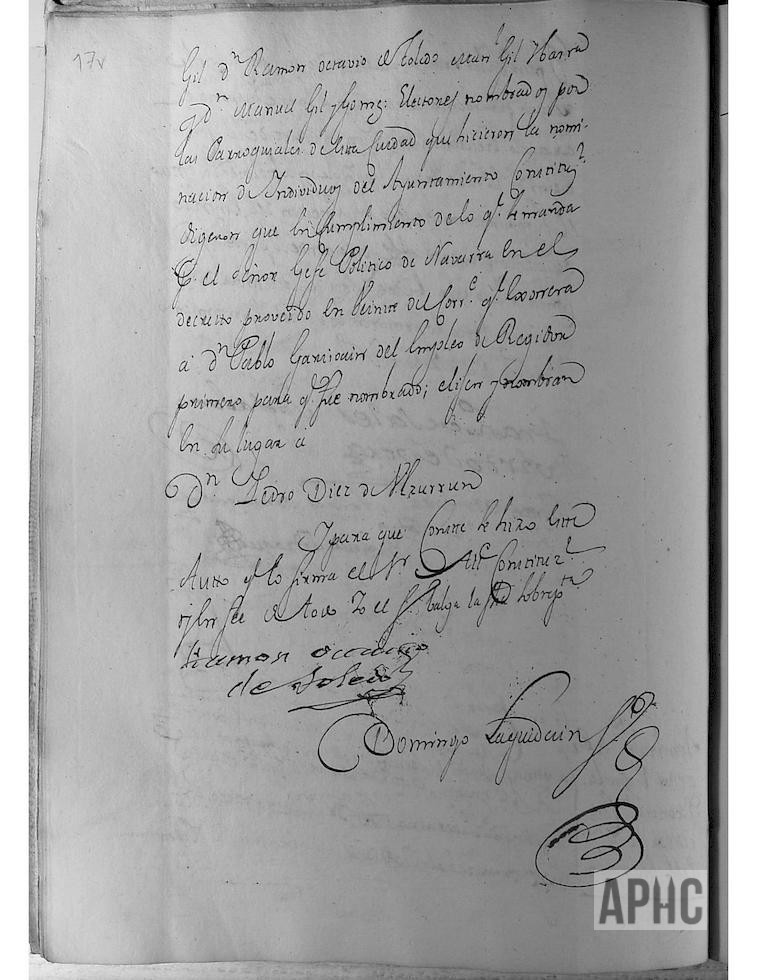 17v
Gil dn Ramon octavio de Toledo Manl Gil Ybarra
y dn Manuel Gil y Gomez: Electores nombrados por
las Parroquiales de esta Ciudad que hicieron la nomi-
nacion de Individuos del Ayuntamiento Constitul
digeron que en Cumplimiento de lo ql. se manda
el Señor Gefe Politico de Navarra en el
decreto proveido en Veinte del corre ql. Exonera
a dn Pablo del Empleo de Regidor
primero para ql. fue nombrado; elijen y nombran
en su lugar a
Dn Pedro Diez de Ulzurrun
Y para que Conste se hizo este
Auto ql. lo firma el Sr Alce Constituzl
y en fee de todo Yo el valga la
Ramon occavio
de Toledo
Domingo Laquidain
APHC